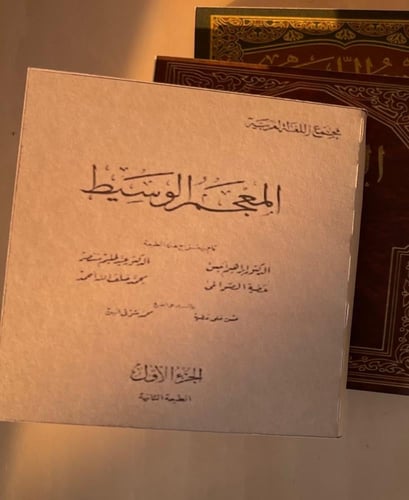 مجمع اللغة العربية
المعجم الوسيط
قام بإخراج هذه الطبعة
الدكتور إبراهيم أنيس الدكتور عبد الحليم منتصر
عطية الصوالحي محمد خلف الله أحمد
حسن علي عطية محمد شوقي أمين
الجزء الأول
الطبعة الثانية